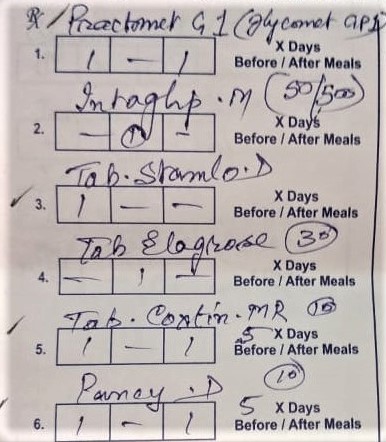 Rx
Practomet G 1 (Glycomet GP1)
1. 1 — 1 X Days
Before / After Meals
Intaglip . M (50/500)
2. — 1 — X Days
Before / After Meals
Tab. Stamlo . D
3. 1 — — X Days
Before / After Meals
Tab (30)
4. — 1 — X Days
Before / After Meals
Tab. MR (10)
5. 1 — 1 5 X Days
Before / After Meals
. D (10)
6. 1 — 1 5 X Days
Before / After Meals